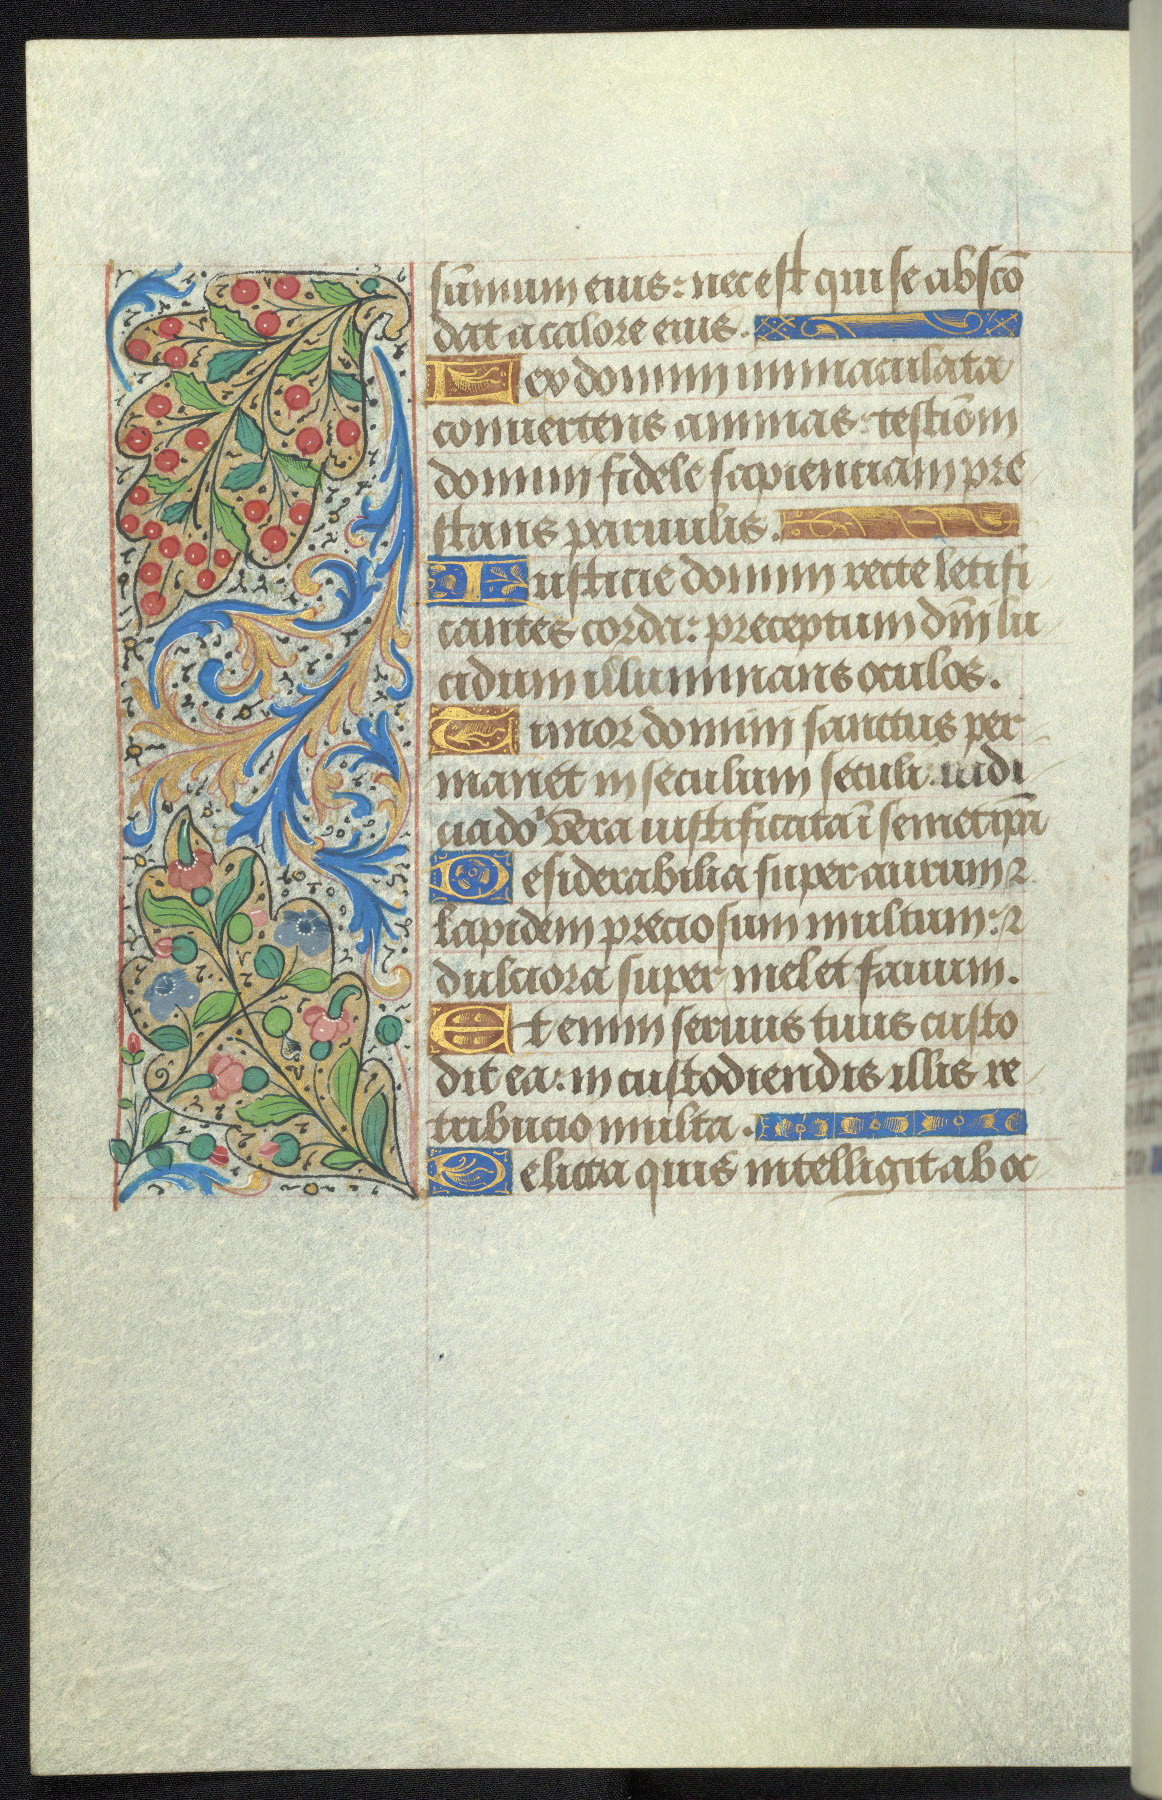 sūmum eius: nec est qui se abscō
dat a calore eius.
Lex domini immaculata
conuertens animas: testiōm
domini fidele sapienciam pre
stans paruulis.
Iusticie domini recte letifi
cantes corda: preceptum dn̄i lu
cidum illuminans oculos.
Timor domini sanctus per
manet in seculum seculi: iudi
cia do' vera iustificata ī semetip̄a
Desiderabilia super aurum ⁊
lapidem preciosum multum: ⁊
dulciora super mel et fauum.
Etenim seruus tuus custo
dit ea: in custodiendis illis re
tribucio multa.
Delicta quis intelligit ab oc